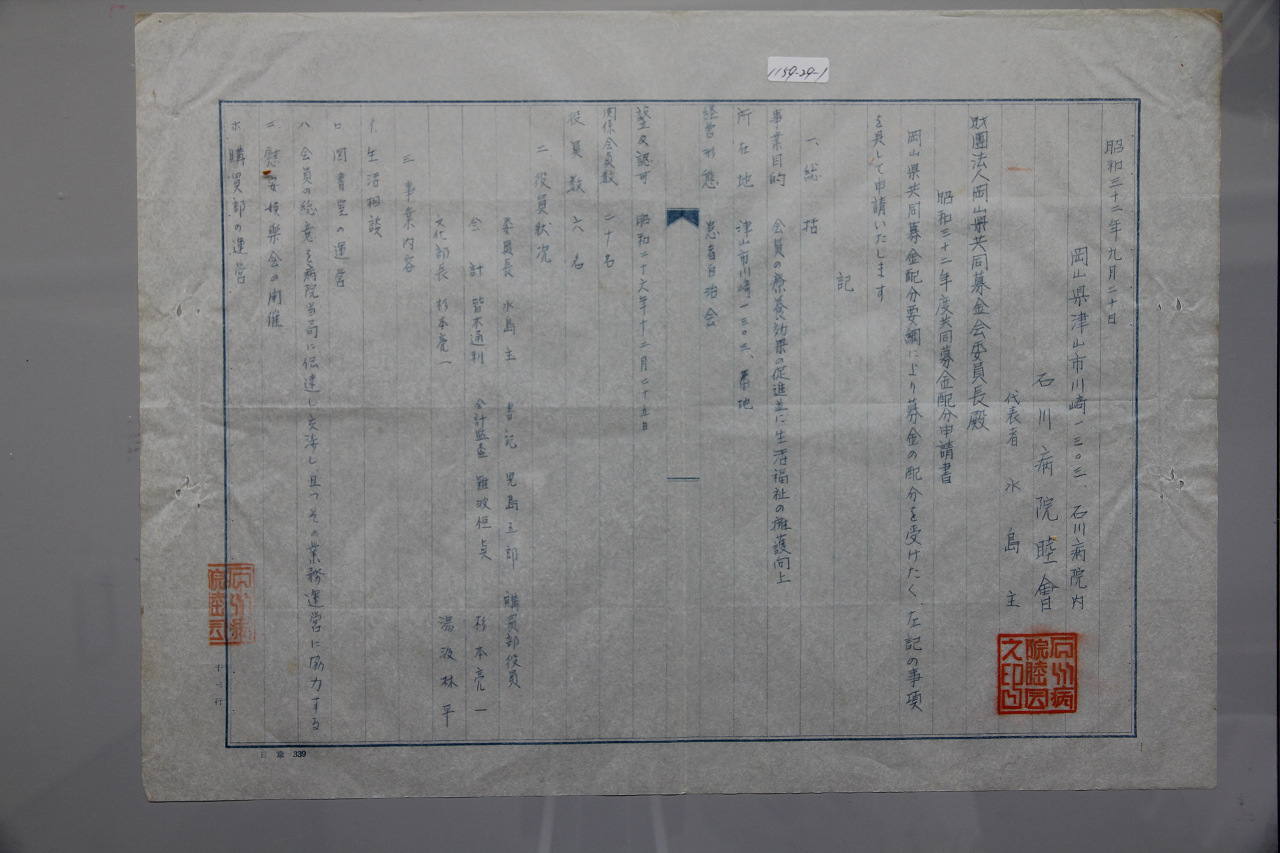 1159-29-1
昭和三十二年九月二十日
岡山県津山市川崎一三〇三、石川病院内
石川病院睦會
代表者 水島 主
財團法人岡山県共同募金会委員長殿
昭和三十二年度共同募金配分申請書
岡山県共同募金配分要綱により募金の配分を受けたく左記の事項
を具して申請いたします
記
一、総括
事業目的 会員の療養効果の促進並に生活福祉の擁護向上
所在地 津山市川崎一三〇三、番地
経営形態 患者自治会
設立及認可 昭和二十六年十二月二十五日
関係会員数 二十名
役員数 六名
二、役員状況
委員長 水島 主 書記 児島五郎 購買部役員
会計 皆木通利 会計監査 難波恒貞 杉本亮一
文化部長 杉本亮一 湯浅林平
三 事業内容
イ 生活相談
ロ 図書室の運営
ハ 会員の総意を病院当局に伝達し交渉し且つその業務運営に協力する
ニ 慰安娯楽会の開催
ホ 購買部の運営
石川病院睦会之印
十二行
339